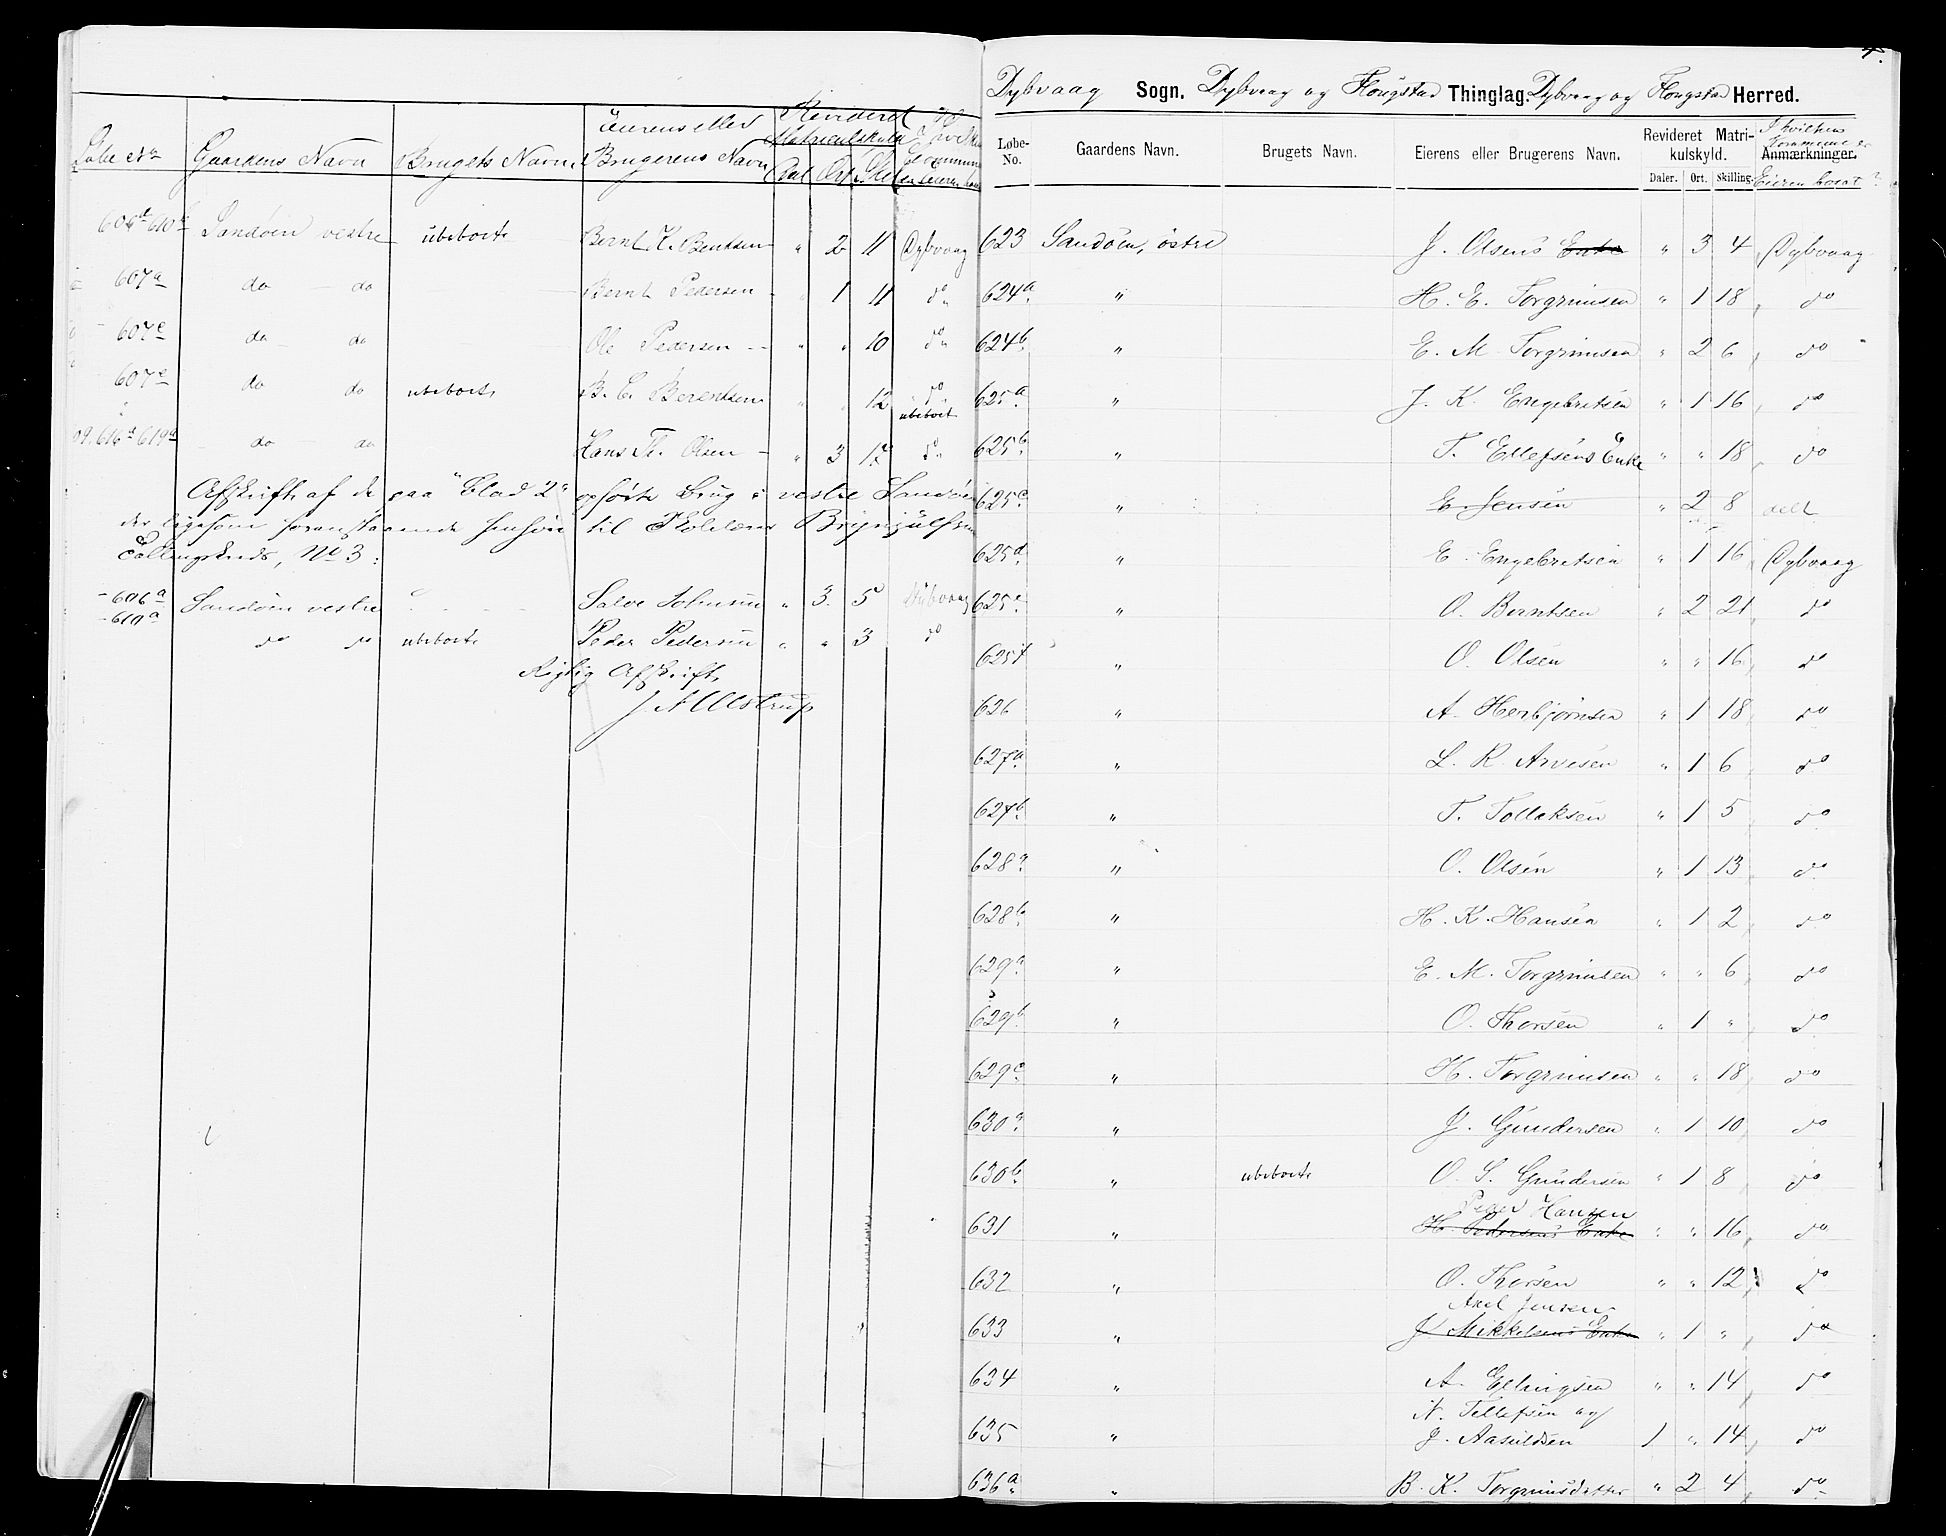 Løbe No Gaardens Navn Brugets Navn Eierens eller Brugerens Navn Revideret Matriculskyld Dal Ort
606d 610 Sandøen vestre ubeboet Bernt K. Bentsen " 2 11 Dybvaag
607a do do Bernt Pedersen " 1 11 do
607c do do Ole Pedersen " " 10 do
607e do do ubeboet B. E. Berentsen " " 12 do ubeboet
616d 619d do do Hans Th. Olsen " 3 do
Afskrift af de paa Blad 2 opførte Brug i vestre Sandøen
der ligesom foranstaaende henhøre til Brynjulfsen
Tællingskreds, No 3:
606a 610a Sandøen vestre Salve " 3 5 Dybvaag
do do ubeboet Peder Pedersen " " 3 do
Rigtig Afskrift
Dybvaag Sogn. Dybvaag og Thinglag. Dybvaag og Herred.
Løbe-No. Gaardens Navn. Brugets Navn. Eierens eller Brugerens Navn. Revideret Matrikulskyld. Daler. Ort. Skilling. Anmærkninger. I hvilken Kommune er Eieren bosat?
623 Sandøen, østre J. Olsens Enke " 3 4 Dybvaag
624a " H. E. Torgrimsen " 1 18 do
624b " E. M. Torgrimsen " 2 6 do
625a " J. K. Engebretsen " 1 16 do
625b " T. Ellefsens Enke " " 18 do
625c " E. Jensen " 2 8 delt
625d " E. Engebretsen " 1 16 Dybvaag
625e " O. Berntsen " 2 21 do
625f " O. Olsen " " 16 do
626 " A. Herbjørnsen " 1 18 do
627a " L. R. Arvesen " 1 6 do
627b " T. Tollaksen " 1 5 do
628a " O. Olsen " 1 13 do
628b " H. K. Hansen " 1 2 do
629a " E. M. Torgrimsen " " 6 do
629b " O. Thorsen " 1 " do
629c " H. Torgrimsen " " 18 do
630a " J. Gundersen " 1 10 do
630b " ubeboet O. S. Gundersen " 1 8 do
Peder Hansen
631 " H. Pedersens Enke " " 16 do
632 " O. Thorsen " " 12 do
Axel Jensen
633 " J. Mikkelsens Enke " 1 " do
634 " A. Ellingsen " " 14 do
N. Tellefsen og
635 " J. Aasuldsen 1 " 14 do
636a " B. K. Torgrimsdatter " 2 4 do